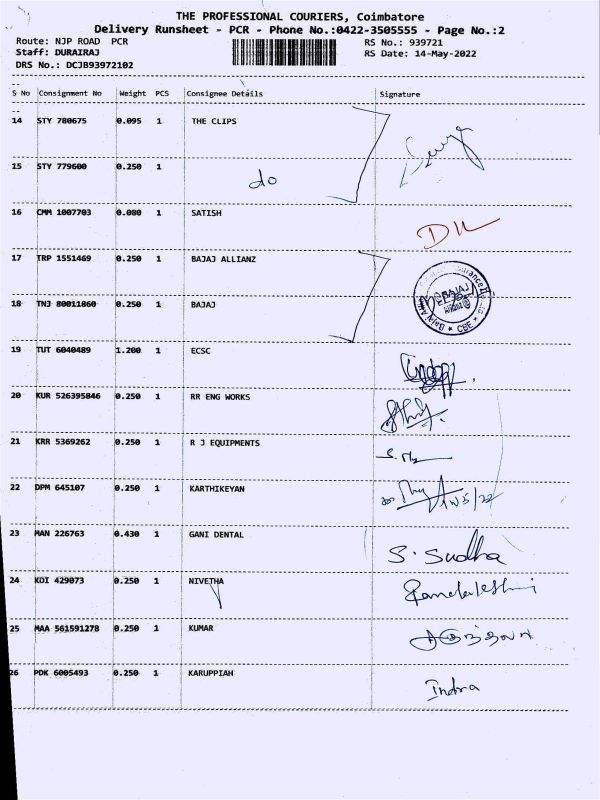 THE PROFESSIONAL COURIERS, Coimbatore
Delivery Runsheet - PCR - Phone No.:0422-3505555 - Page No.:2
Route: NJP ROAD PCR
RS No.: 939721
Staff: DURAIRAJ
RS Date: 14-May-2022
DRS No.: DCJB93972102
S No Consignment No Weight PCS Consignee Details Signature
14 STY 780675 0.095 1 THE CLIPS
15 STY 779600 0.250 1 do
16 CMM 1007703 0.080 1 SATISH
17 TRP 1551469 0.250 1 BAJAJ ALLIANZ
18 TNJ 80011860 0.250 1 BAJAJ
19 TUT 6040489 1.200 1 ECSC
20 KUR 526395846 0.250 1 RR ENG WORKS
21 KRR 5369262 0.250 1 R J EQUIPMENTS
22 DPM 645107 0.250 1 KARTHIKEYAN
23 MAN 226763 0.430 1 GANI DENTAL S. Sudha
24 KDI 429073 0.250 1 NIVETHA
25 MAA 561591278 0.250 1 KUMAR
26 PDK 6005493 0.250 1 KARUPPIAH Indra